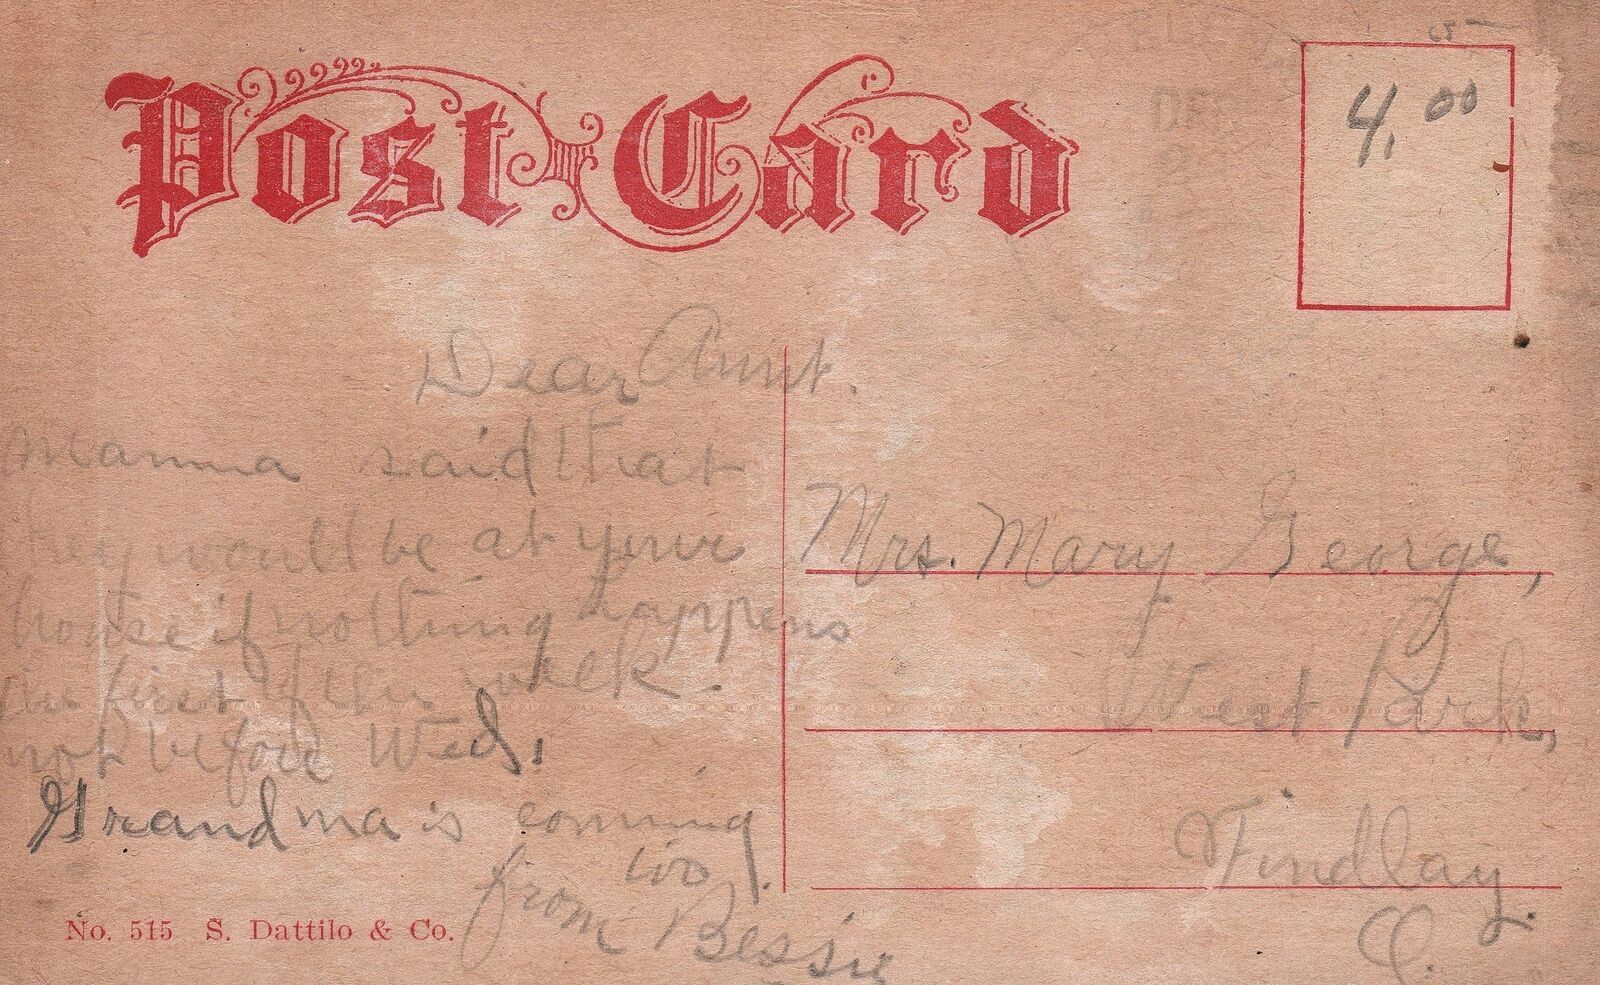 Post Card
4.00
DEC
2
Dear Aunt.
Mamma said that
they would be at your
house if nothing happens
the first of the week.
not before Wed.
Grandma is coming
too.
from Bessie
Mrs. Mary George,
West Park,
Findlay,
O.
No. 515 S. Dattilo & Co.